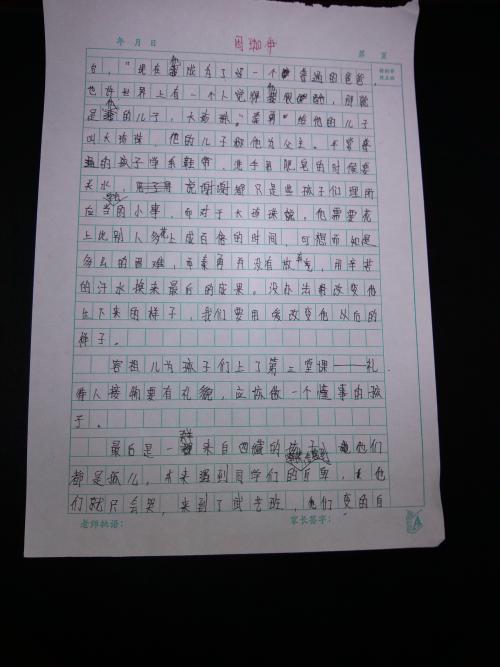 年 月 日 周珈卉 第 页
台，“现在他成为了一个普通的爸爸，
也许世界上有一个人觉得他很酷，那就
是他的儿子，大珍珠。”秦勇给他的儿子
叫大珍珠，他的儿子称他为父王。平常普
通的孩子学系鞋带，洗手用肥皂的时候要
关水，说谢谢都只是些孩子们理所
应当的小事，而对于大珍珠说，他需要花
上比别人多上成百倍的时间，可想而知是
多么的困难，而秦勇并没有放弃，用辛苦
的汗水换来最后的成果。没办法看改变他
生下来的样子，我们要用爱改变他以后的
样子。
容祖儿为孩子们上了第三堂课——礼
待人接物要有礼貌，应该做一个懂事的孩
子。
最后是一群来自四川的孩子，他们
都是孤儿，本来遇到同学们的自卑，他
们就只会哭，来到了武术班，他们变的自
老师批语： 家长签字：